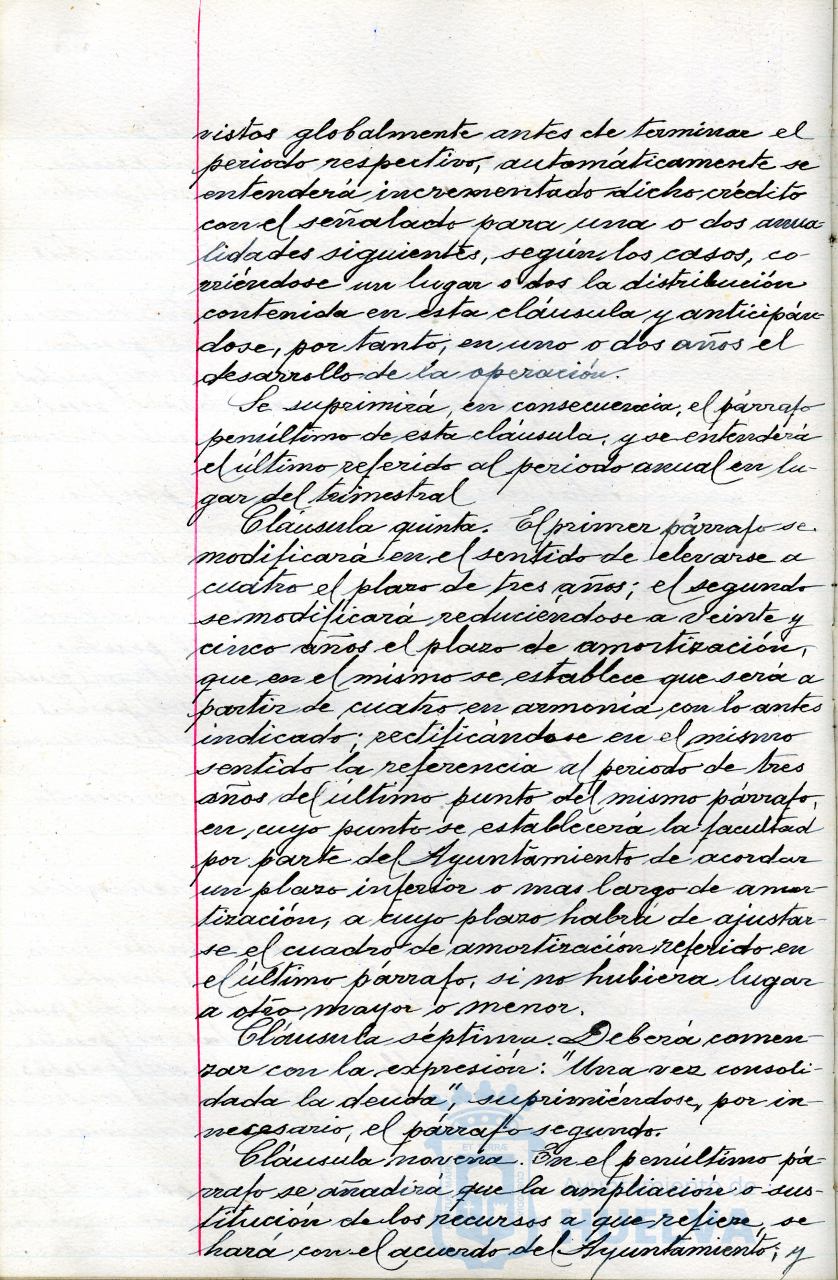 vistos globalmente antes de terminar el
periodo respectivo, automáticamente se
entenderá incrementado dicho crédito
con el señalado para una o dos anua-
lidades siguientes, según los casos, co-
rriéndose un lugar o dos la distribución
contenida en esta cláusula y anticipán-
dose, por tanto, en uno o dos años el
desarrollo de la operación.
Se suprimirá, en consecuencia, el párrafo
penúltimo de esta cláusula, y se entenderá
el último referido al periodo anual en lu-
gar del trimestral
Cláusula quinta. El primer párrafo se
modificará en el sentido de elevarse a
cuatro el plazo de tres años; el segundo
se modificará reduciéndose a veinte y
cinco años el plazo de amortización,
que en el mismo se establece que será a
partir de cuatro en armonía con lo antes
indicado; rectificándose en el mismo
sentido la referencia al periodo de tres
años del último punto del mismo párrafo,
en cuyo punto se establecerá la facultad
por parte del Ayuntamiento de acordar
un plazo inferior o mas largo de amor-
tización, a cuyo plazo habrá de ajustar-
se el cuadro de amortización referido en
el último párrafo, si no hubiera lugar
a otro mayor o menor.
Cláusula séptima. Deberá comen-
zar con la expresión: "Una vez consoli-
dada la deuda", suprimiéndose, por in-
necesario, el párrafo segundo.
Cláusula novena. En el penúltimo pá-
rrafo se añadirá que la ampliación o sus-
titución de los recursos a que refiere, se
hará con el acuerdo del Ayuntamiento; y
Ayuntamiento de
HUELVA